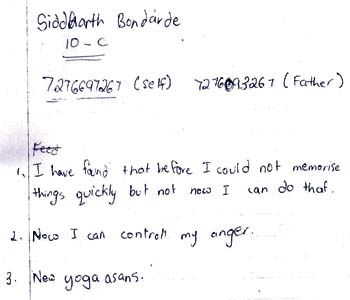 Siddharth Bondarde
10 - C
7276697267 (self) 7276093267 (Father)
Feed
1. I have found that before I could not memorise
things quickly but not now I can do that.
2. Now I can controll my anger.
3. New yoga asans.